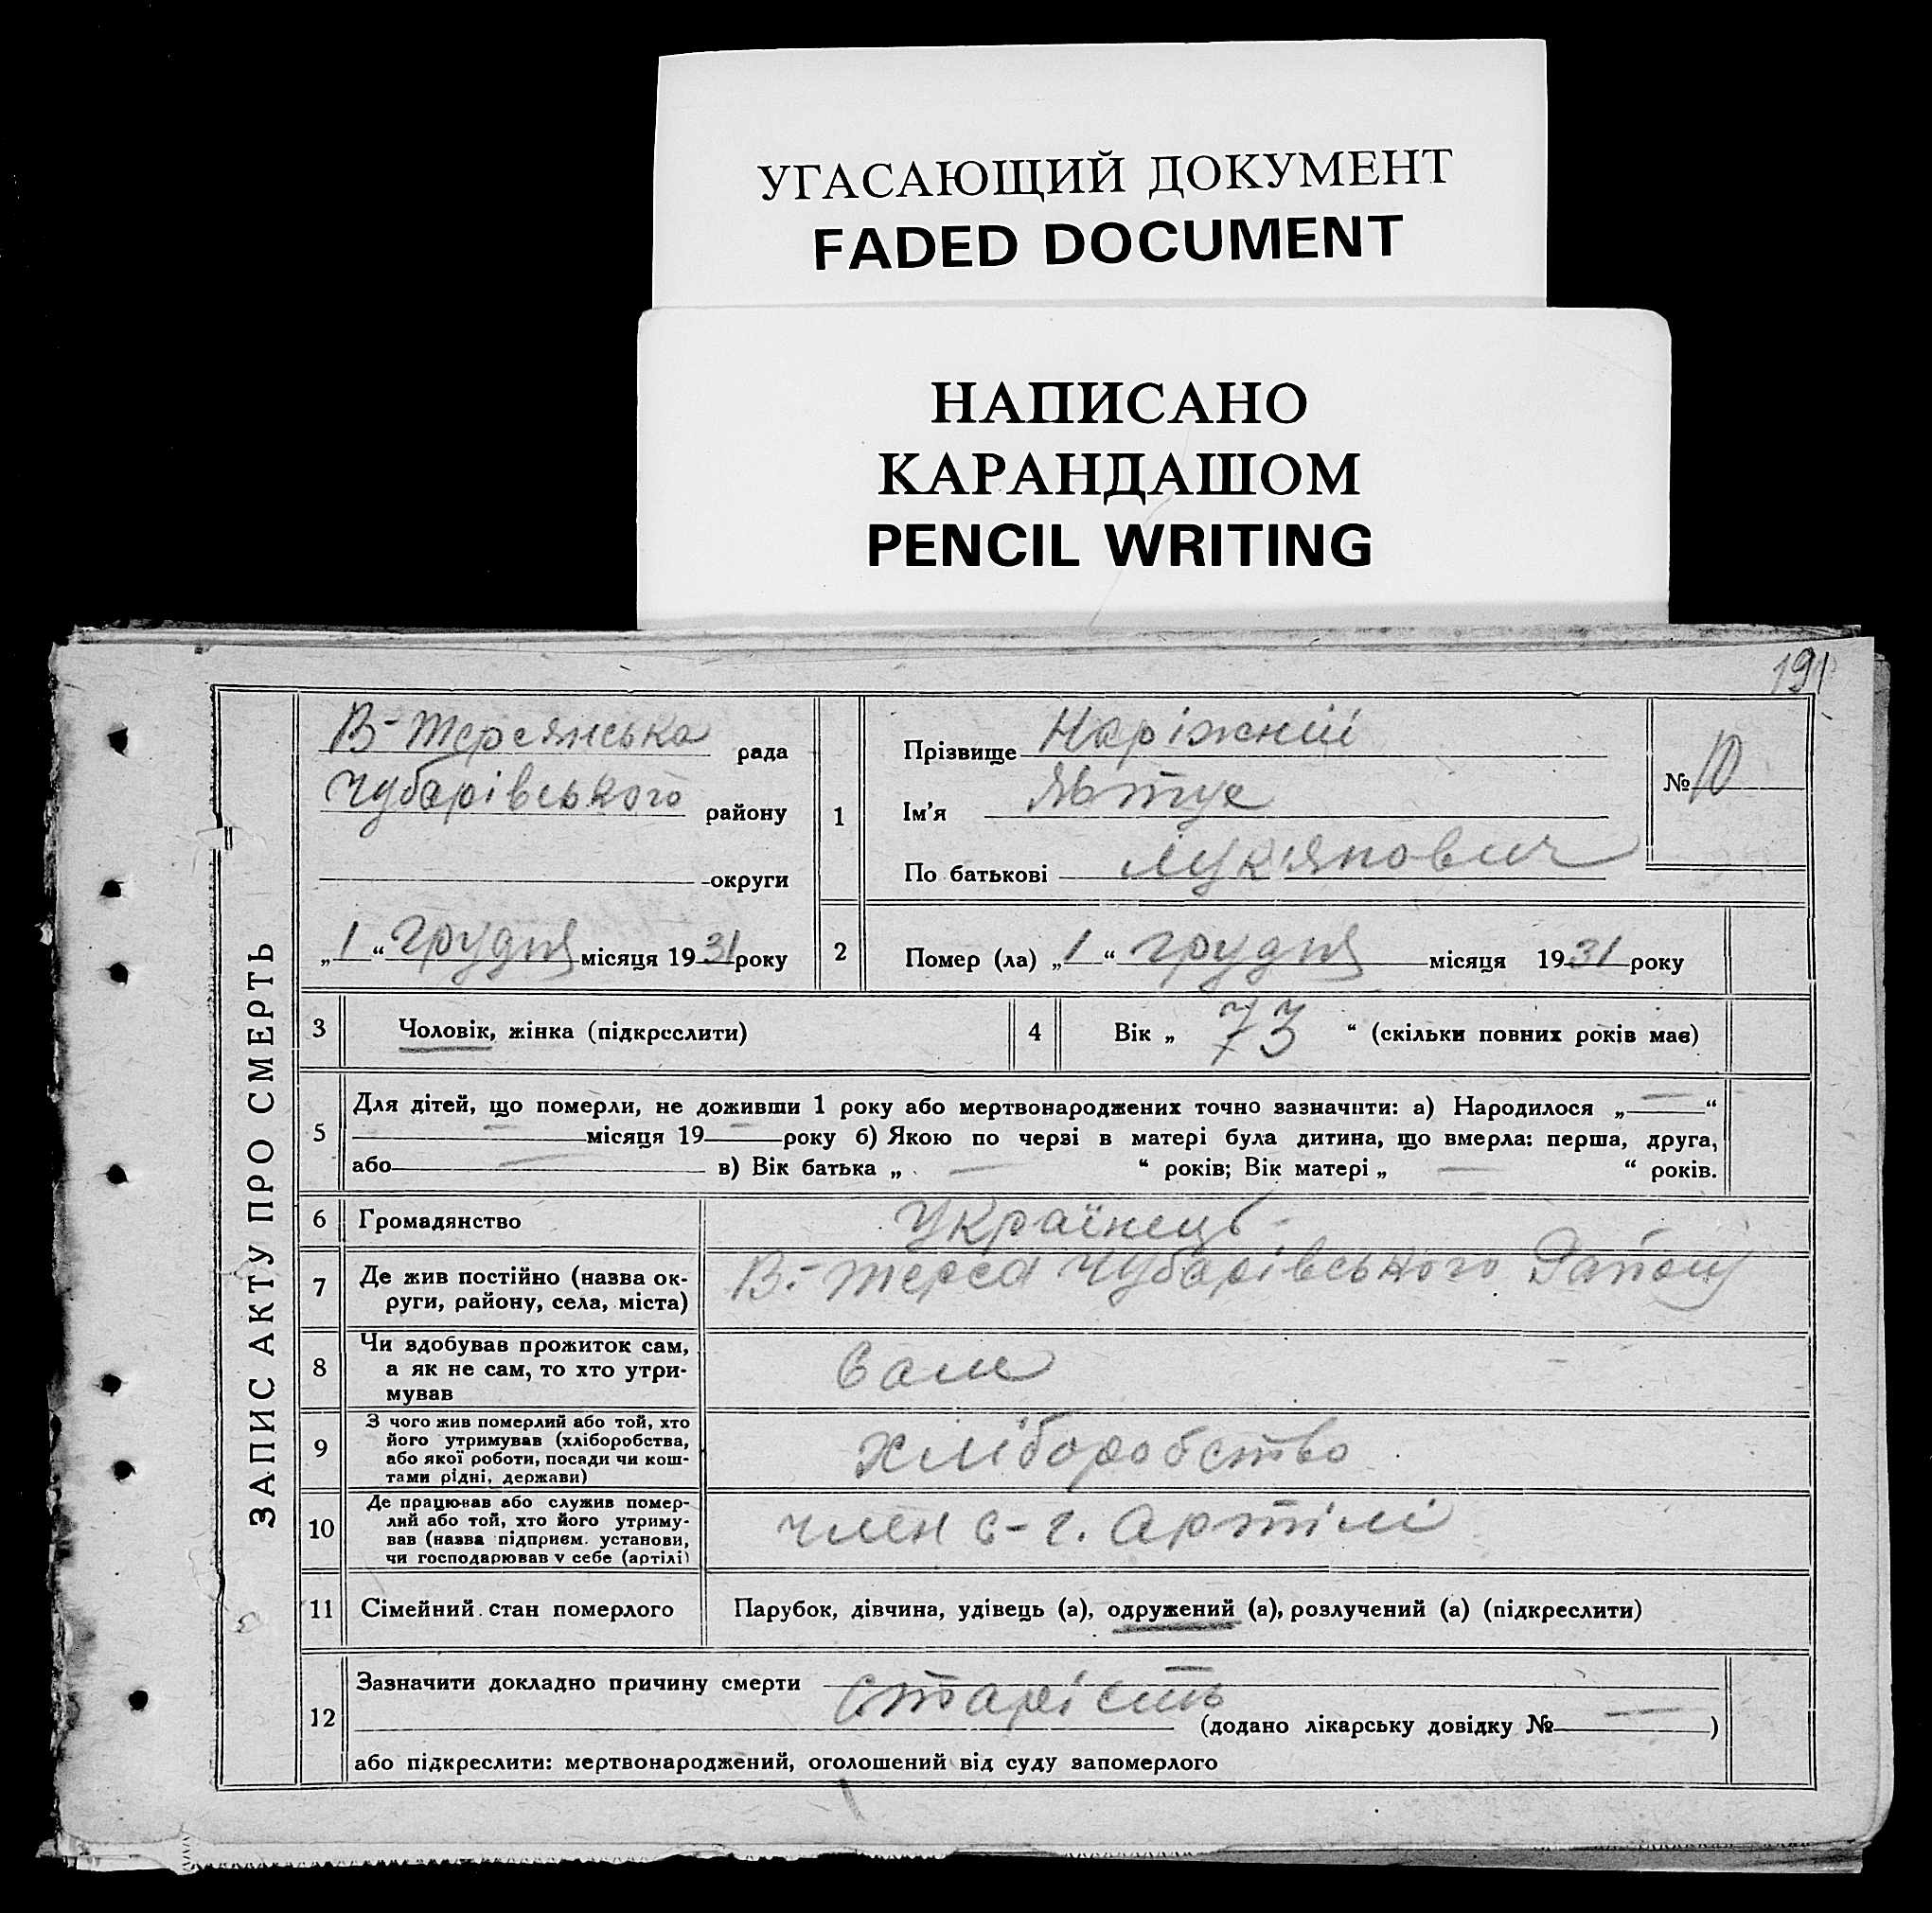 УГАСАЮЩИЙ ДОКУМЕНТ
FADED DOCUMENT
НАПИСАНО
КАРАНДАШОМ
PENCIL WRITING
191
ЗАПИС АКТУ ПРО СМЕРТЬ
В-Терсянська рада
Чубарівського району
округи
„1“ грудня місяця 1931 року
1
Прізвище Наріжний
Ім'я Явтух
По батькові Лук'янович
№ 10
2 Помер (ла) „1“ грудня місяця 1931 року
3 Чоловік, жінка (підкреслити)
4 Вік „ 73 “ (скільки повних років має)
5 Для дітей, що померли, не доживши 1 року або мертвонароджених точно зазначити: а) Народилося „—“
— місяця 19— року б) Якою по черзі в матері була дитина, що вмерла: перша, друга,
або — в) Вік батька „ — “ років; Вік матері „ — “ років.
6 Громадянство Українець
7 Де жив постійно (назва ок-
руги, району, села, міста) В.-Терса Чубарівського Району
8 Чи здобував прожиток сам,
а як не сам, то хто утри-
мував Сам
9 З чого жив померлий або той, хто
його утримував (хліборобства,
або якої роботи, посади чи кош-
тами рідні, держави) Хліборобство
10 Де працював або служив помер-
лий або той, хто його утриму-
вав (назва підприєм. установи,
чи господарював у себе (артілі) член с-г. Артілі
11 Сімейний стан померлого Парубок, дівчина, удівець (а), одружений (а), розлучений (а) (підкреслити)
12 Зазначити докладно причину смерти старість
(додано лікарську довідку № — )
або підкреслити: мертвонароджений, оголошений від суду запомерлого